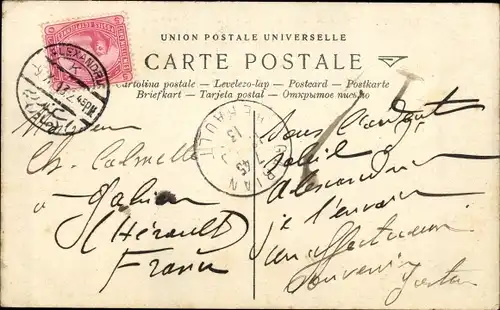 UNION POSTALE UNIVERSELLE
CARTE POSTALE
Cartolina postale — Levelezo-lap — Postcard — Postkarte
Briefkart — Tarjeta postal — Открытое письмо
ALEXANDRIE
2 45PM
GABIAN
HERAULT
Monsieur
Ch. Calmelle
à Gabian
(Hérault)
France
Sous l'ardent
soleil d'
Alexandrie
je t'envoie
un affectueux
souvenir